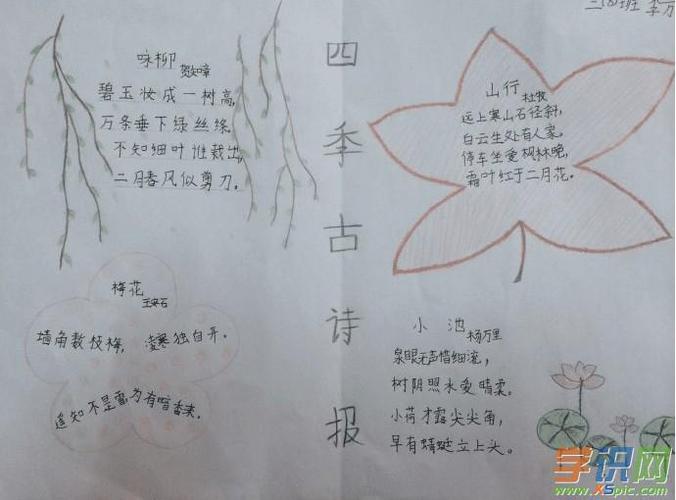 三(四)班 李万
四季古诗报
咏柳
贺知章
碧玉妆成一树高,
万条垂下绿丝绦。
不知细叶谁裁出,
二月春风似剪刀。
山行
杜牧
远上寒山石径斜,
白云生处有人家。
停车坐爱枫林晚,
霜叶红于二月花。
梅花
王安石
墙角数枝梅, 凌寒独自开。
遥知不是雪,为有暗香来。
小池
杨万里
泉眼无声惜细流,
树阴照水爱晴柔。
小荷才露尖尖角,
早有蜻蜓立上头。
学识网
www.XSpic.com